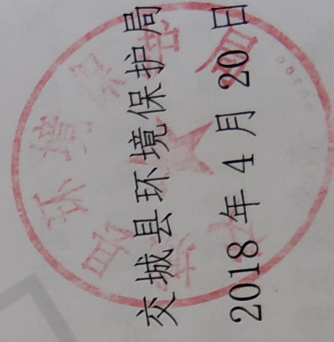 交城县环境保护局
2018年4月20日